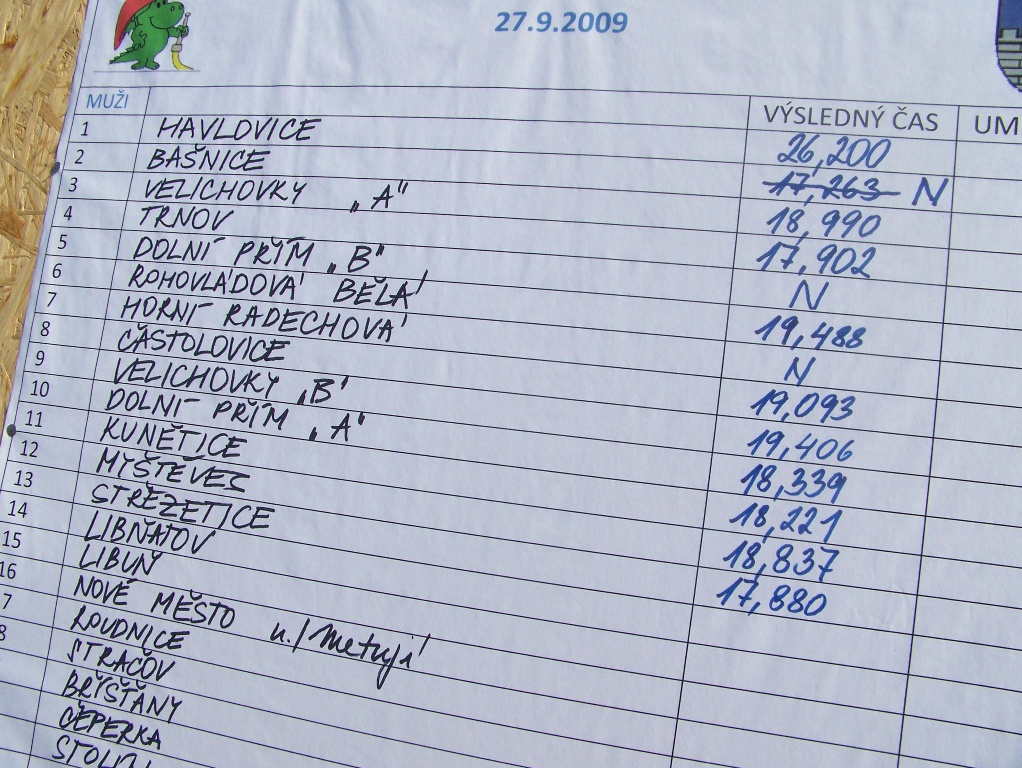 27.9.2009
MUŽI VÝSLEDNÝ ČAS UM
1 HAVLOVICE 26,200
2 BAŠNICE 17,263 N
3 VELICHOVKY „A" 18,990
4 TRNOV 17,902
5 DOLNÍ PŘÍM „B" N
6 ROHOVLÁDOVA BĚLÁ 19,488
7 HORNÍ RADECHOVÁ N
8 ČASTOLOVICE 19,093
9 VELICHOVKY „B" 19,406
10 DOLNÍ PŘÍM „A" 18,339
11 KUNĚTICE 18,221
12 MYŠTĚVES 18,837
13 STŘEZETICE 17,880
14 LIBŇATOV
15 LIBUŇ
16 NOVÉ MĚSTO n./Metují
7 ROUDNICE
8 STRAČOV
BŘÍŠŤANY
ČEPERKA